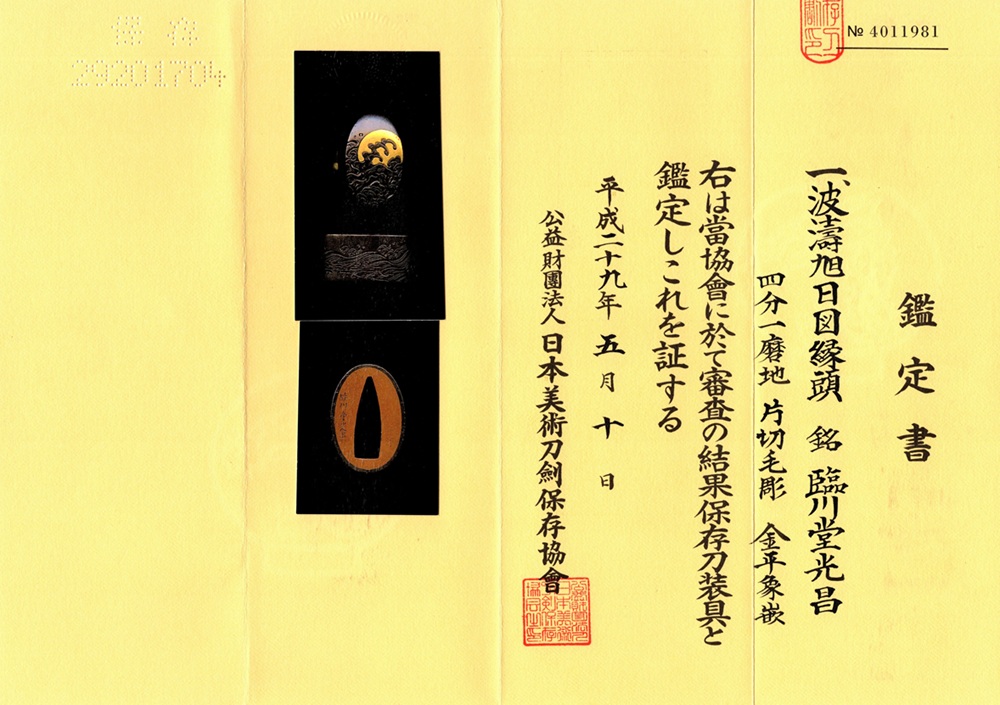 № 4011981
鑑定書
一、波濤旭日図縁頭 銘 臨川堂光昌
四分一磨地 片切毛彫 金平象嵌
右は當協會に於て審査の結果保存刀装具と
鑑定しこれを証する
平成二十九年五月十日
公益財團法人日本美術刀劍保存協會
保存
29201704